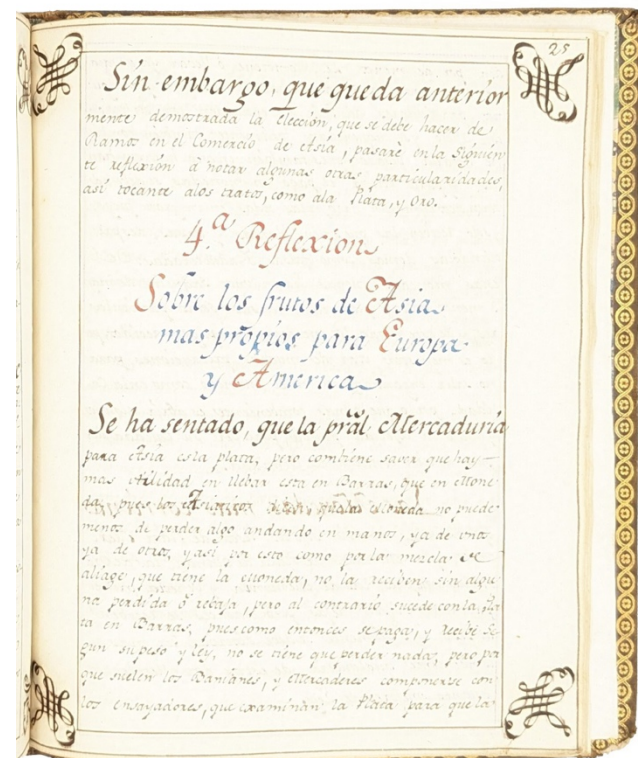 25
Sin embargo, que queda anterior
mente demostrada la elección, que se debe hacer de
Ramos en el Comercio de Asia, pasarè en la Siguien
te reflexión à notar algunas otras particularidades,
asi tocante alos tratos, como ala Plata, y Oro.
4.a Reflexion
Sobre los frutos de Asia
mas propios para Europa
y America
Se ha sentado, que la pràl Mercaduria
para Asia es la plata, pero combiene saver que hay
mas utilidad en llebar esta en Barras, que en Mone
da, pues los Asiaticos que la Moneda no puede
menos de perder algo andando en manos, ya de unos
ya de otros, y asi por esto como por la mezcla de
aliage, que tiene la Moneda, no la reciben sin algu
na perdida ò rebaja, pero al contrario sucede con la Pla
ta en Barras, pues como entonces se paga, y recibe Se
gun su peso y ley, no se tiene que perder nada, pero por
que suelen los Banianes, y Mercaderes componerse con
los ensayadores, que examinan la Plata para que la